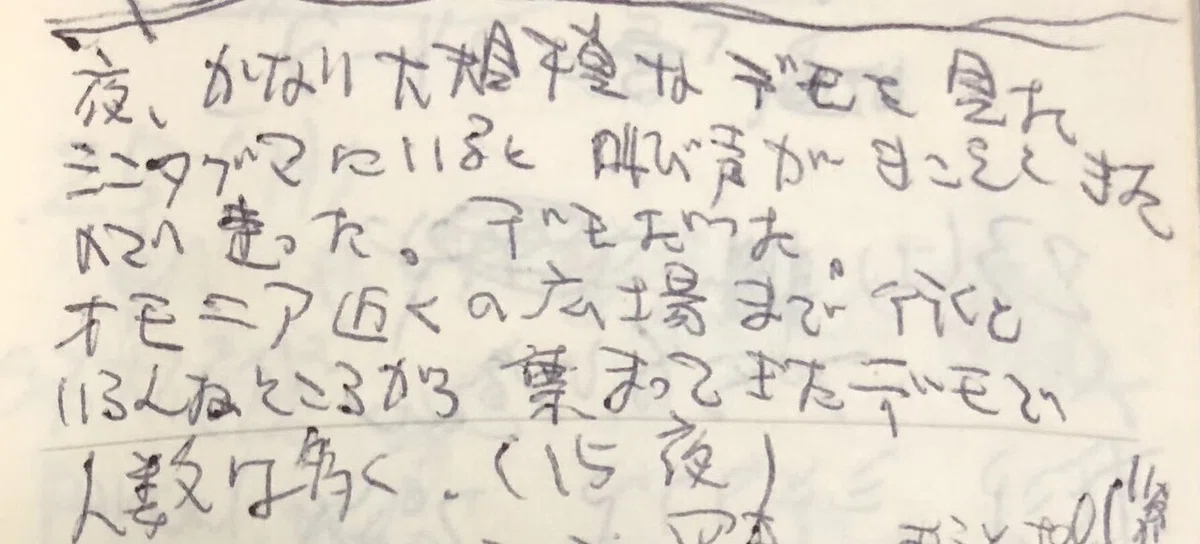 夜、かなり大規模なデモを見た
シンタグマにいると 叫び声がきこえてきた
ので 走った。デモだった。
オモニア近くの広場まで行くと
いろんなところから 集まってきたデモで
人数は多く.(15夜)